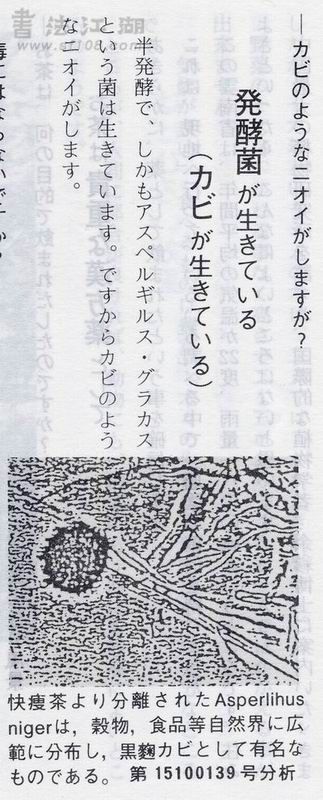 書法江湖
www.sf108.com
―カビのようなニオイがしますが？
発酵菌が生きている
（カビが生きている）
半発酵で、しかもアスペルギルス・グラカス
という菌は生きています。ですからカビのよう
なニオイがします。
毒にはならないですか？
快痩茶より分離されたAsperlihus
nigerは，穀物，食品等自然界に広
範に分布し，黒麴カビとして有名な
ものである。 第15100139号分析